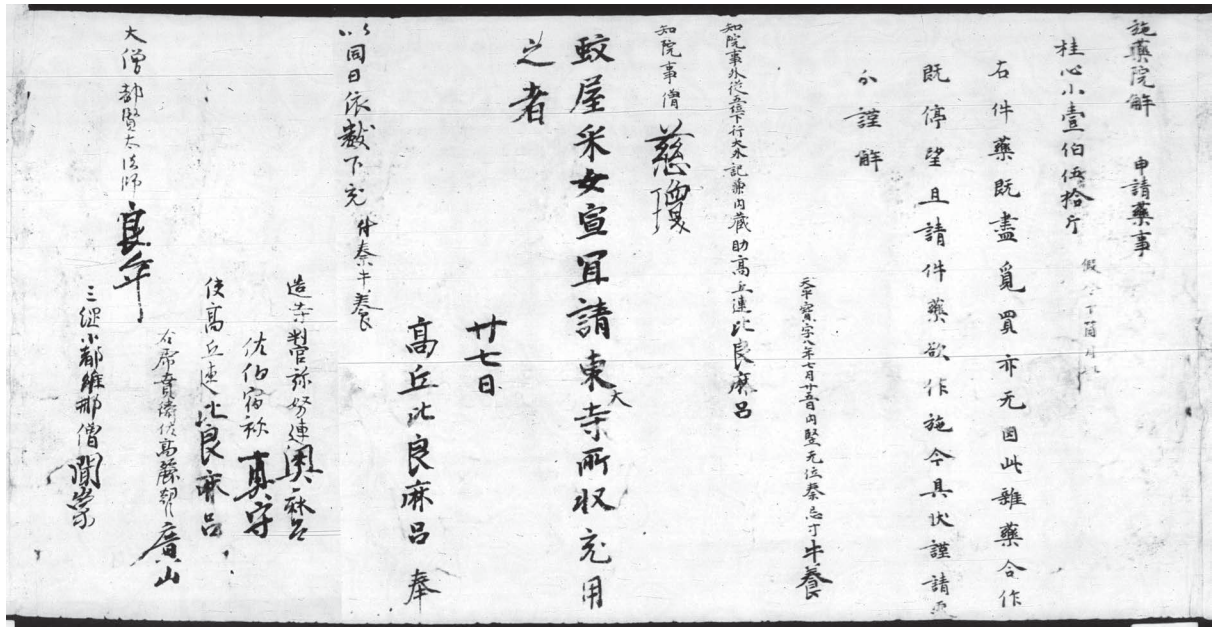 施藥院解 申請藥事
桂心小壹伯伍拾斤
右件藥既盡覓買亦无因此雜藥合作
既停望且請件藥欲作施今具伏謹請
謹解
天平寶字八年七月廿五日内竪无位秦忌寸牛養
知院事外従五位下行大外記兼内藏助高丘連比良麻呂
知院事僧 慈瓊
蚊屋采女宣宜請東大寺所収充用
之者
廿七日
高丘比良麻呂 奉
以同日依數下充 付秦牛養
造寺判官弥努連奥麻呂
佐伯宿祢真守
使高丘連比良麻呂
廣山
大僧都賢太法師 良弁
三綱小都維那僧聞崇